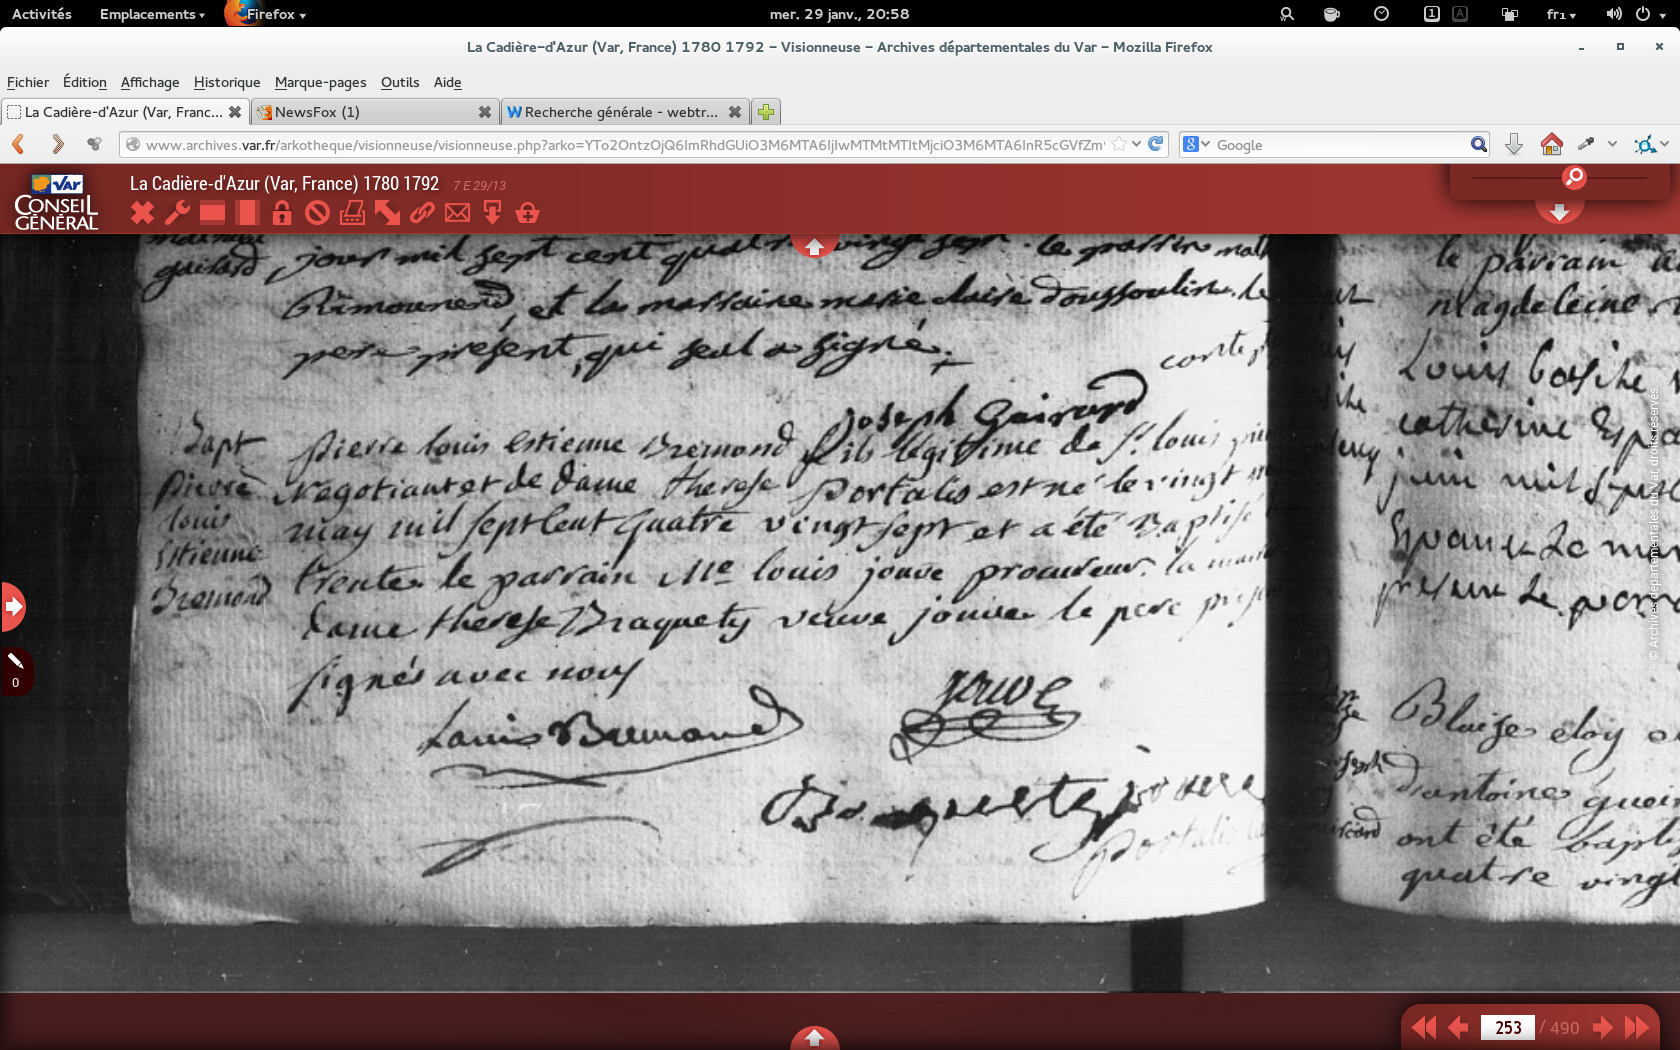 Activités Emplacements Firefox mer. 29 janv., 20:58 1 A fr1
La Cadière-d'Azur (Var, France) 1780 1792 – Visionneuse – Archives départementales du Var – Mozilla Firefox
Fichier Édition Affichage Historique Marque-pages Outils Aide
La Cadière-d'Azur (Var, Franc... NewsFox (1) Recherche générale - webtr...
www.archives.var.fr/arkotheque/visionneuse/visionneuse.php?arko=YTo2OntzOjQ6ImRhdGUiO3M6MTA6IjIwMTMtMTItMjciO3M6MTA6InR5cGVfZm Google
Var
CONSEIL GÉNÉRAL
La Cadière-d'Azur (Var, France) 1780 1792 7 E 29/13
guirard jour mil sept cent quatre vingt sept. le parrin
Rimounend, et la marraine marie claire doussoulin. le
pere présent, qui seul a signé.
Joseph Gairard
Bapt
pierre
louis
Estienne
Bremond
pierre louis Estienne Bremond fils légitime de Sr. louis
Negotiant et de dame therese portalis est né le vingt
may mil sept Cent quatre vingt sept et a été Baptisé
trente le parrain Me louis jouve procureur. la
dame therese Braquety veuve jouve le pere
signés avec nous
Louis Bremond
jouve
Braquety jouve
portalis
le parrain
magdeleine
Louis basile
catherine
juin mil sept
Blaize eloy
d'antoine
ont été
quatre vingt
© Archives départementales du Var, droits réservés.
0
253 / 490